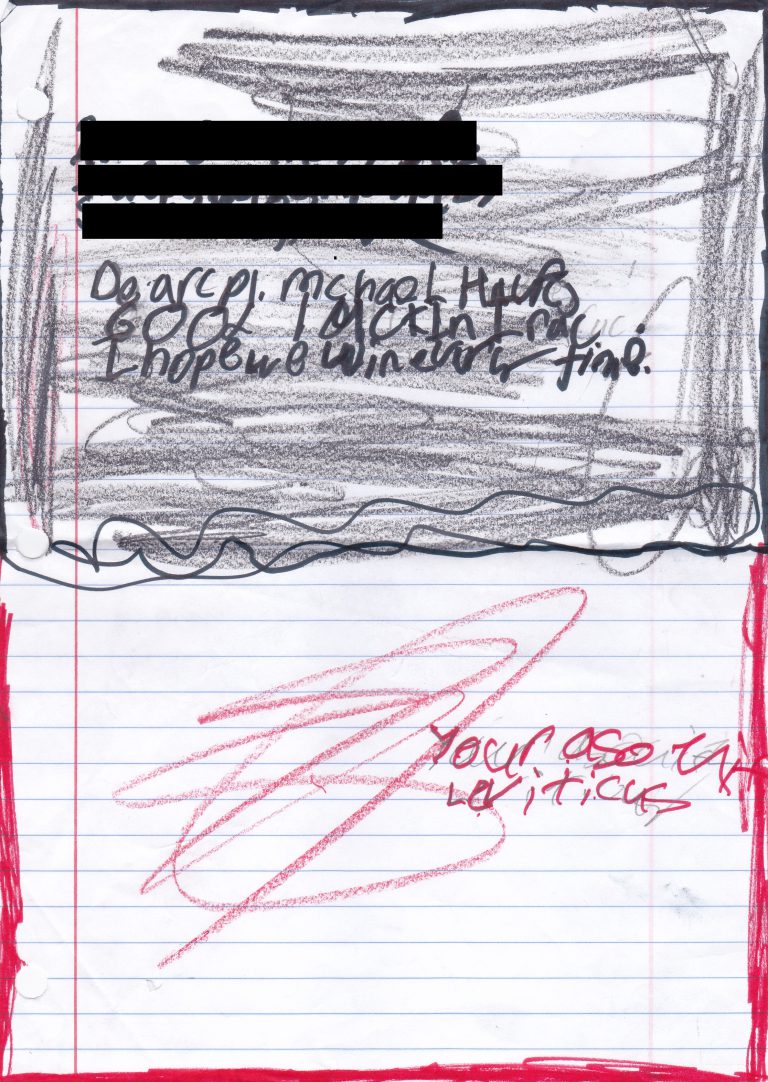 Dear cpl. michael
GOOd lUckIn Irac
I hope we win every time.
Your
leviticus